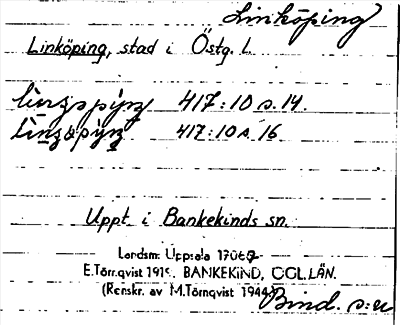 Linköping
Linköping, stad i Östg. l.
417:10 s. 14.
417:10 s. 16
Uppt. i Bankekinds sn.
Landsm. Uppsala
E. Törnqvist 191 . BANKEKIND, ÖGL. LÄN.
(Renskr. av M. Törnqvist 1944)
Bind. s:n